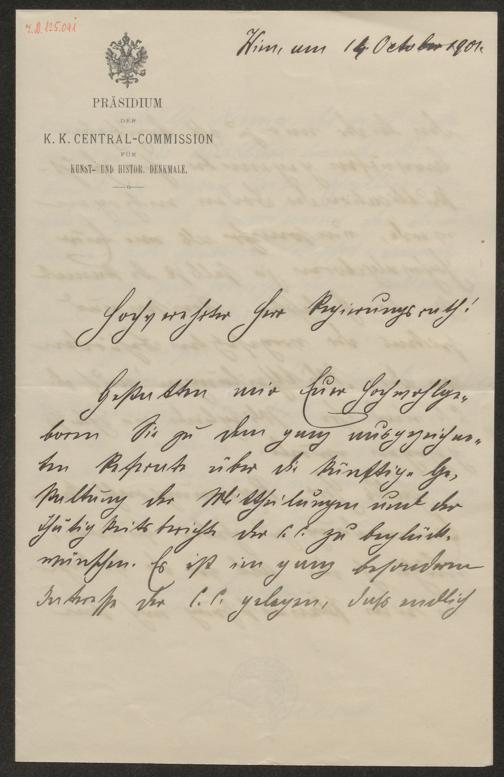 I.N. 125.041
Wien, am 14 October 1901.
PRÄSIDIUM
DER
K. K. CENTRAL-COMMISSION
FÜR
KUNST- UND HISTOR. DENKMALE.
Hochverehrter Herr Regierungsrath!
Gestatten mir Euer Hochwohlge-
boren Sie zu dem ganz ausgezeichne-
ten Referate über die künftige Ge-
staltung der Mittheilungen und der
Thätigkeitsberichte der C. C. zu beglück-
wünschen. Es ist im ganz besonderen
Interesse der C. C. gelegen, dass endlich